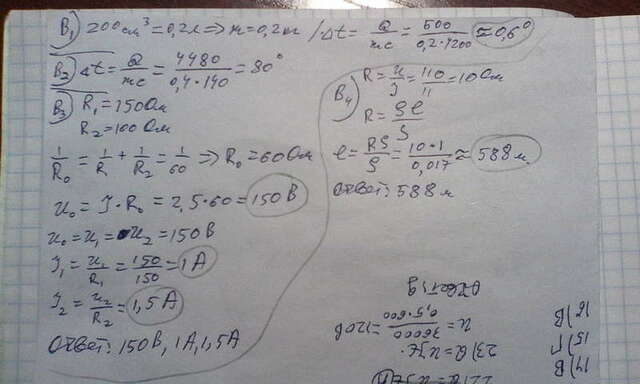 B₁) 200 см³ = 0,2 л => m = 0,2 кг / Δt = Q/mc = 500/0,2·4200 ≈ 0,6°
B₂) Δt = Q/mc = 4480/0,4·140 = 80°
B₃) R₁ = 150 Ом
R₂ = 100 Ом
1/R₀ = 1/R₁ + 1/R₂ = 1/60 => R₀ = 60 Ом
U₀ = J · R₀ = 2,5·60 = 150 В
U₀ = U₁ = U₂ = 150 В
J₁ = U₁/R₁ = 150/150 = 1 А
J₂ = U₂/R₂ = 1,5 А
Ответ: 150 В, 1 А, 1,5 А
B₄) R = U/J = 110/11 = 10 Ом
R = ρl/S
l = RS/ρ = 10·1/0,017 ≈ 588 м.
Ответ: 588 м
14) В
15) Г
16) В
23) Q = UJt
U = 36000/0,5·600 = 120 В